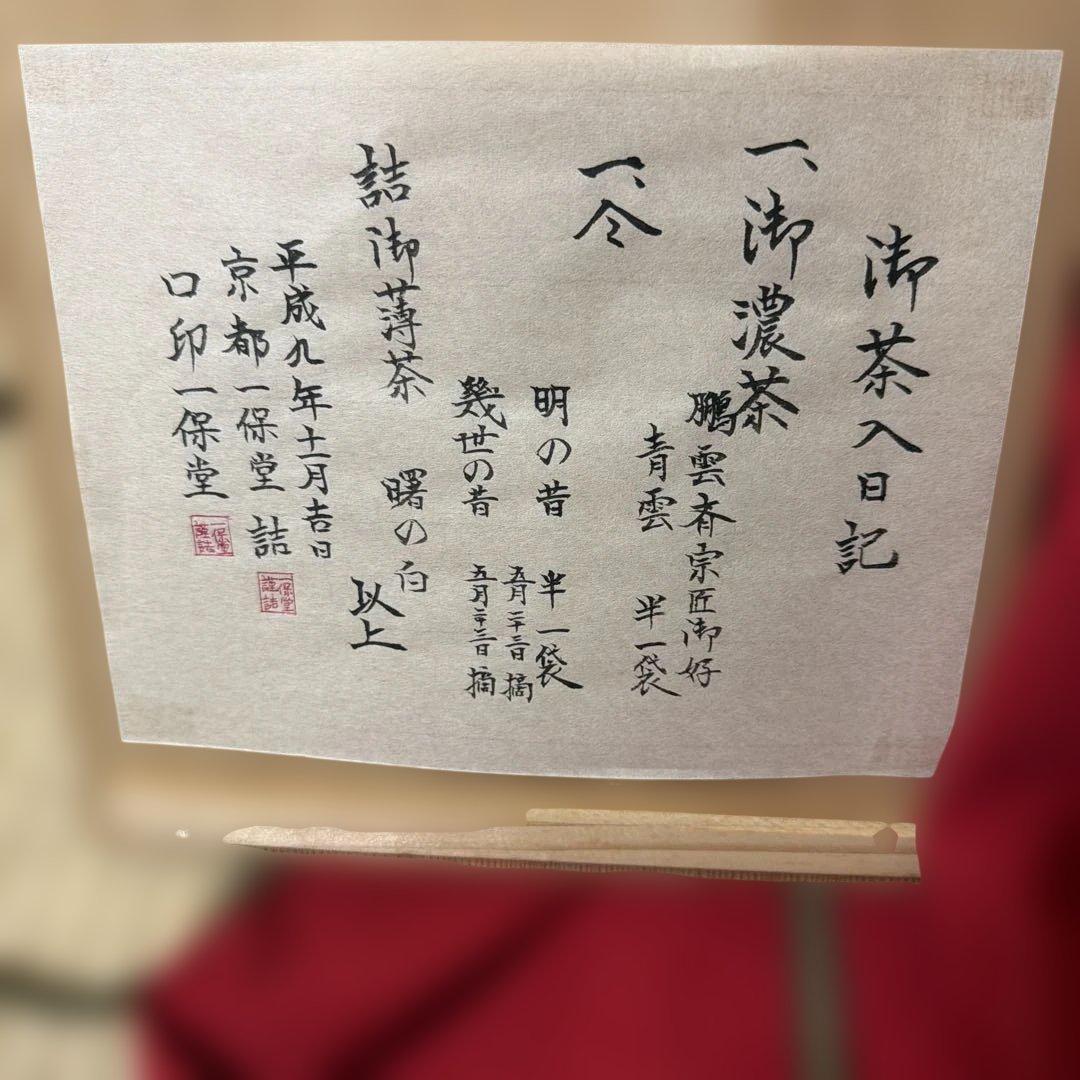 御茶入日記
一、御濃茶
鵬雲斎宗匠御好
青雲 半一袋
一、仝
明の昔 半一袋
五月二十三日摘
幾世の昔 五月二十三日摘
詰御薄茶 曙の白
以上
平成九年十一月吉日
京都一保堂 詰
口印一保堂
一保堂謹詰
一保堂謹詰